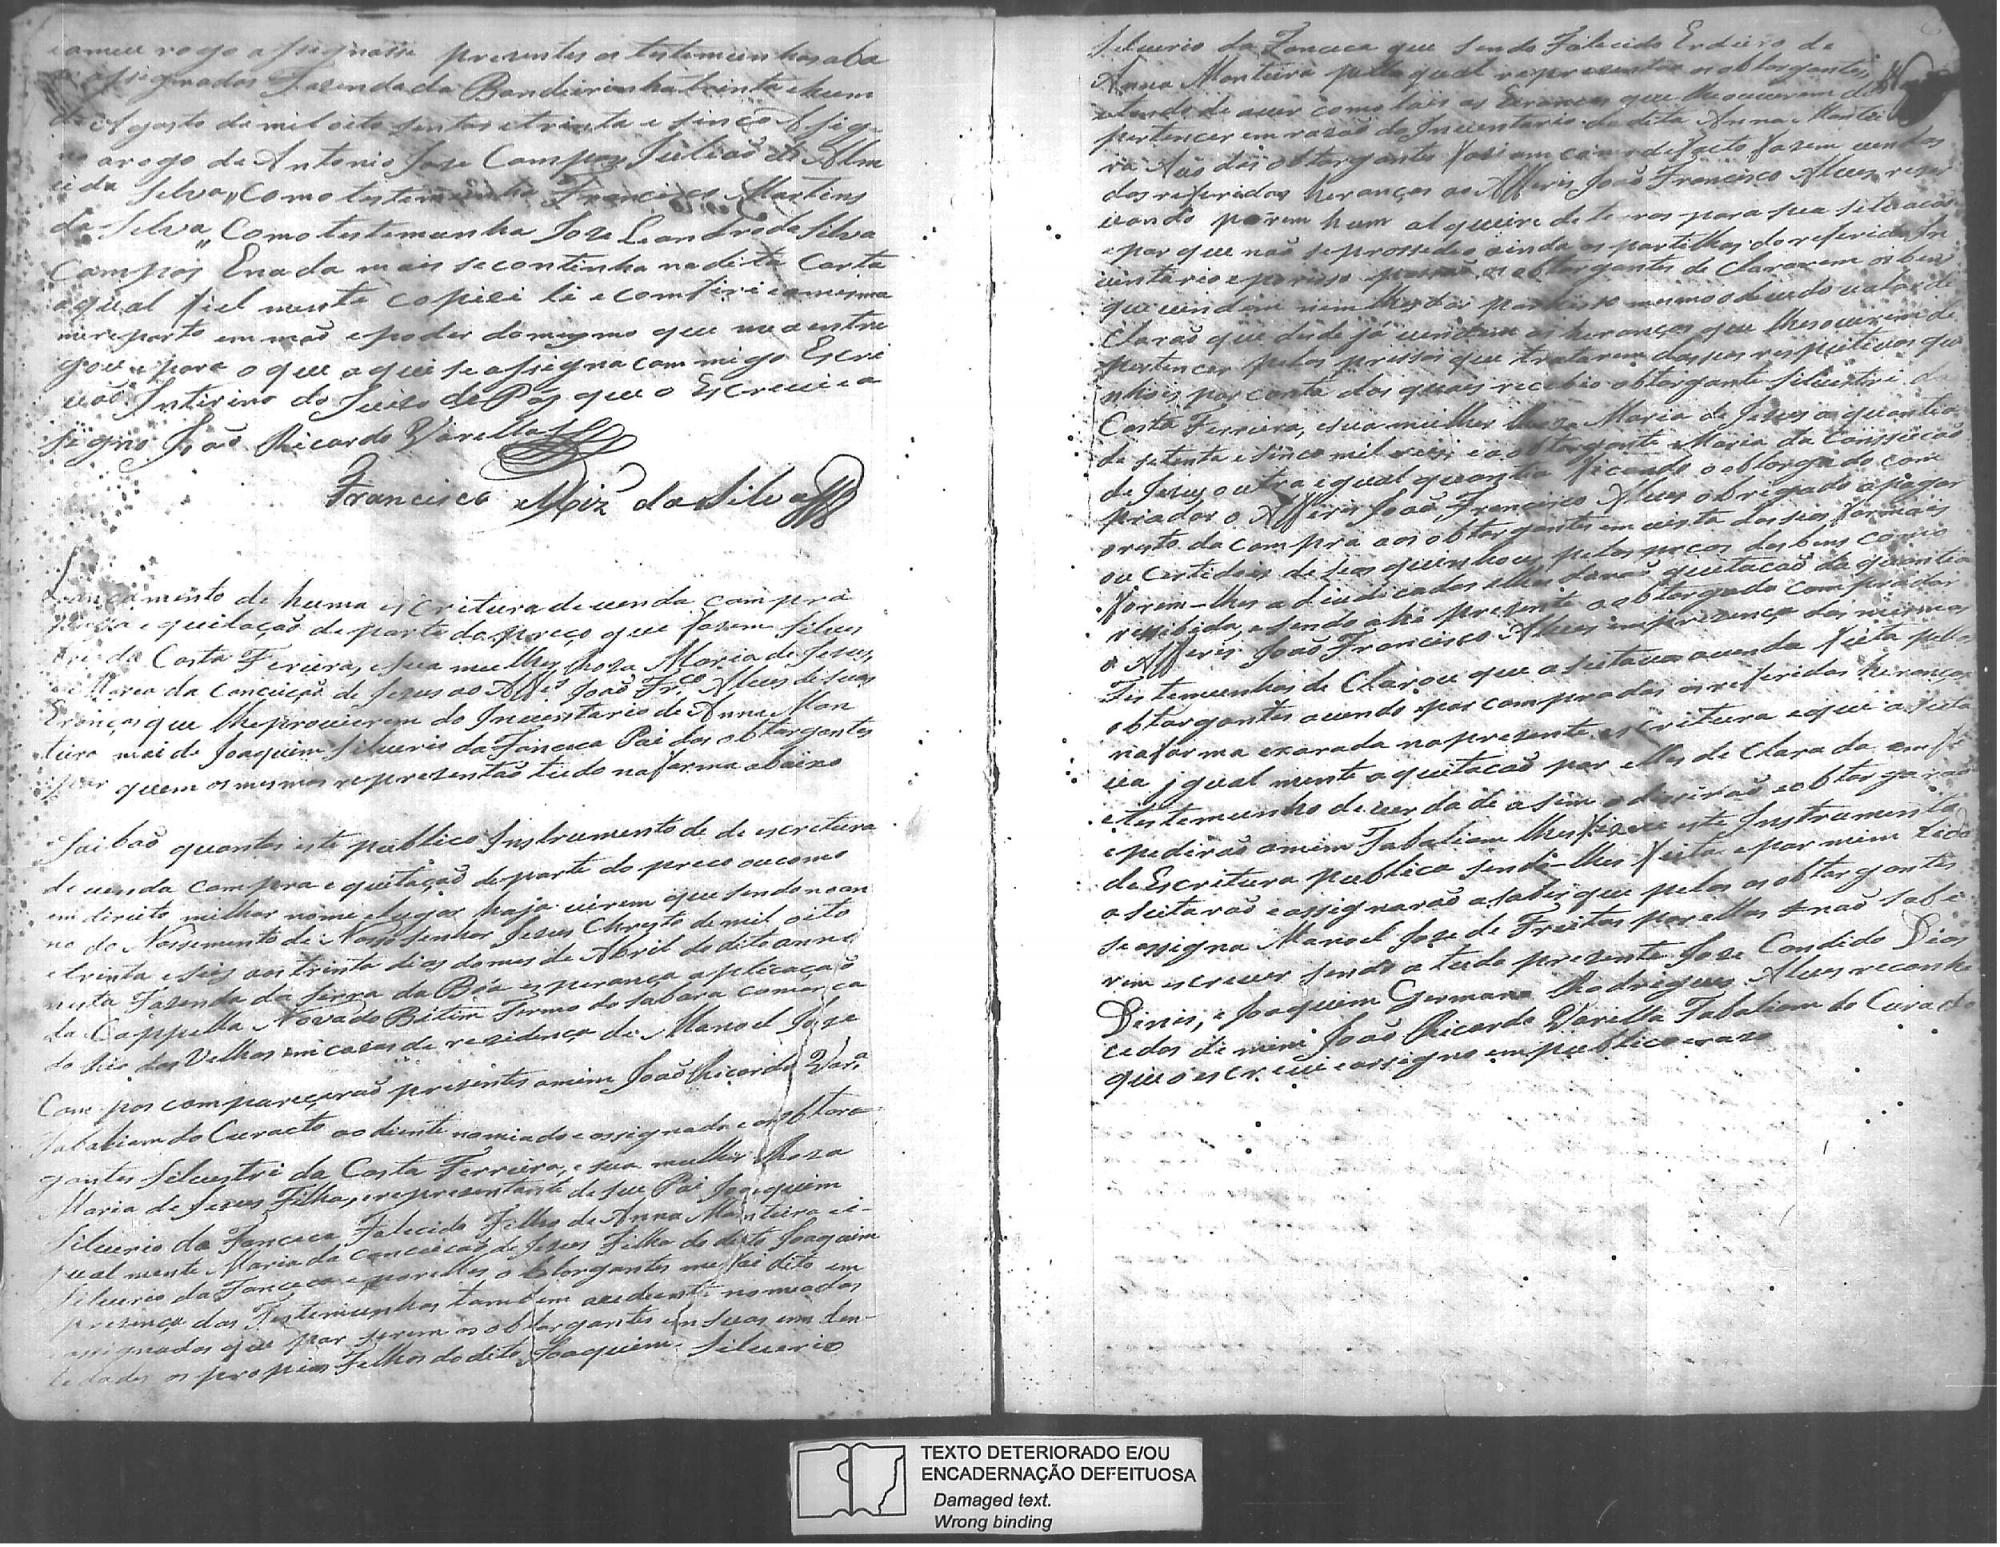 a meu rogo assignasse presentes as testemunhas aba
assignadas Fazenda da Bandeirinha trinta e hum
de Agosto de mil oito sentos e trinta e sinco Asig
no a rogo de Antonio Joze Campos Julião de Alm
eida Silva, Como testemunha Francisco Martins
da Silva, Como testemunha Joze Leandro da Silva
Campos E nada mais se continha na dita Carta
a qual fiel mente copiei li e comfiri e a mesma
me reporto em mão e poder do mesmo que me a entre
gou e para o que aqui se assigna com migo Escri
vão Intirino do Juizo de Pas que o Escrevi e a
signo João Ricardo Varella
Francisco Miz da Silva
Lançamento de huma escritura de venda compra
e quitação de parte do preço que fazem Silves
tre da Costa Fereira, e sua mulher Roza Maria de Jesus,
e Maria da Conceição de Jezus ao Alfes João Frco Alves de suas
Eranças que lhe provierem do Inventario de Anna Mon
teira mai de Joaquim Silverio da Fonceca Pai dos obtorgantes
e por quem os mesmos reprezentão tudo na forma abaixo
Saibão quantos este publico Instrumento de de escritura
de venda compra e quitação de parte do preco ou como
em direito milhor nome e lugar haja virem que sendo no an
no do Nassemento de Nosso Senhor Jezus Christo de mil oito
e trinta e seis aos trinta dias do mes de Abril do dito anno
nesta Fazenda da Serra da Boa esperança aplicação
da Cappella Nova do Bitim Termo do Sabara comarca
do Rio das Velhas em cazas de rezidença de Manoel Joze
Campos compareçerão prezentes a mim João Ricardo Vara
Tabaliam do Curacto ao diente nomiado e assignado e os obtor
gantes Silvestri da Costa Ferreira, e sua mulher Roza
Maria de Jezus Filha, e reprezentante de seu Pai Joaquim
Silverio da Fonceca Falecido Filho de Anna Monteira e i-
gual mente Maria da Conceicão de Jezus Filha do dito Joaquim
Silverio da Fonceca e por elles obtorgantes me foi dito em
prezença das Testemunhas tambem ao diente nomeadas
e assignadas que por serem os obtorgantes em suas em den
tedades os propios Filhos do dito Joaquim Silverio
Silverio da Fonceca que sendo Falecido Erdeiro de
Anna Monteira pella qual reprezentão os obtorgantes
e tendo de aver como tais as Eranças que lhe ouverem de
pertencer em razão do Inventario da dita Anna Montei
ra elles obtorgantes fazião como de facto fazem venda
das referidas heranças ao Alferis João Francisco Alves rezer
vando porem hum alqueire de terras para sua situacão
e por que não se prossedeo ainda as partilhas do referido In
ventario e por isso não possão os obtorgantes de clararem os bens
que vendem nem lhes dar por isso mesmo o devido valor de
clarão que desde já vendem as heranças que lhes ouverem de
pertencer pelos pressos que tratarem dos seus respectivos qu
nhois por conta dos quais recebeo o obtorgante Silvestri da
Costa Ferreira, e sua mulher Roza Maria de Jezus a quantia
de setenta e sinco mil reis e a obtorgante Maria da Conssicão
de Jezus outra igual quantia ficando o obtorgado com
prador o Alferis João Francisco Alves obrigado a pagar
o resto da compra aos obtorgantes em vista dos seos formais
ou Certidois de seos quinhois pelos preços dos bens como
forem-lhes adjudicados e elles darão quitacão da quantia
ressibida, e sendo ahi prezente o obtorgado comprador
o Alferis João Francisco Alves em prezença das mesmas
Testemunhas de Clarou que aseitava a venda feita pelos
obtorgantes avendo por compradas as referidas heranças
na forma exarada na prezente escritura e que aseita
va igual mente a quitacão por elles de Clarada em fé
e testemunho de verdade asim o dicerão e obtorgarão
e pedirão a mim Tabaliam lhes fizesse este Instrumento
de Escritura publica sendo-lhes feita e por mim lida
aseitarão e assignarão a saber que pelos os obtorgantes
se assigna Manoel Joze de Freitas por elles não sabe
rem escrever sendo a tudo prezente Joze Candido Dias
Dinis, e Joaquim Germano Rodrigues Alves reconhe
cidos de mim João Ricardo Varella Tabaliam do Curacto
que o escrevi e assigno em publico e razo
TEXTO DETERIORADO E/OU
ENCADERNAÇÃO DEFEITUOSA
Damaged text.
Wrong binding